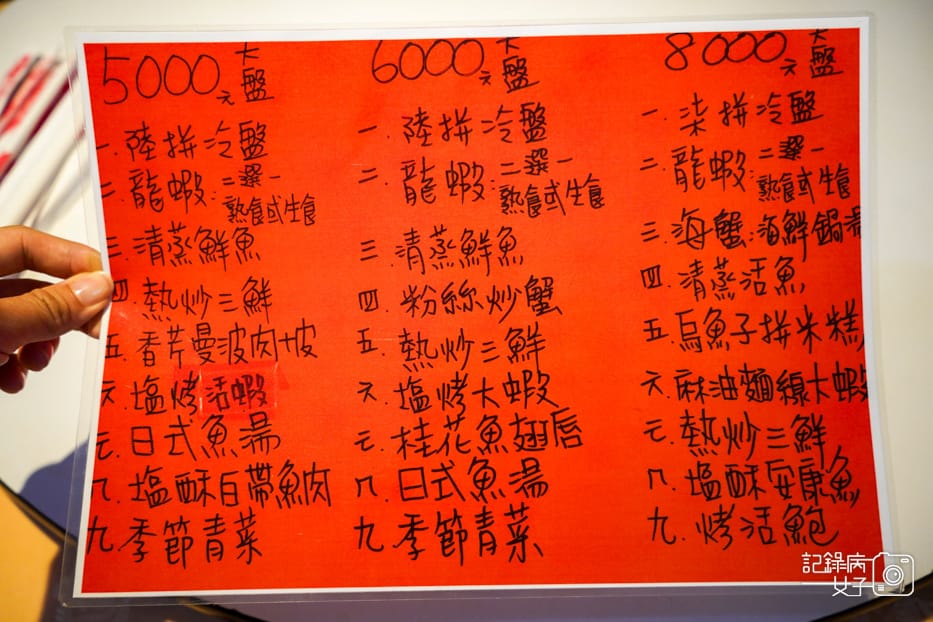 5000元大盤
一.陸拼冷盤
二.龍蝦:二選一
熱食或生食
三.清蒸鮮魚
四.熱炒三鮮
五.香芹曼波肉坡
六.塩烤活蝦
七.日式魚湯
八.塩酥白帶魚肉
九.季節青菜
6000元大盤
一.陸拼冷盤
二.龍蝦:二選一
熱食或生食
三.清蒸鮮魚
四.粉絲炒蟹
五.熱炒三鮮
六.塩烤大蝦
七.桂花魚翅唇
八.日式魚湯
九.季節青菜
8000元大盤
一.柒拼冷盤
二.龍蝦:二選一
熱食或生食
三.海蟹:海鮮鍋湯
四.清蒸活魚
五.烏魚子拼米糕
六.麻油麵線大蝦
七.熱炒三鮮
八.塩酥安康魚
九.烤活鮑
記錄病
女子